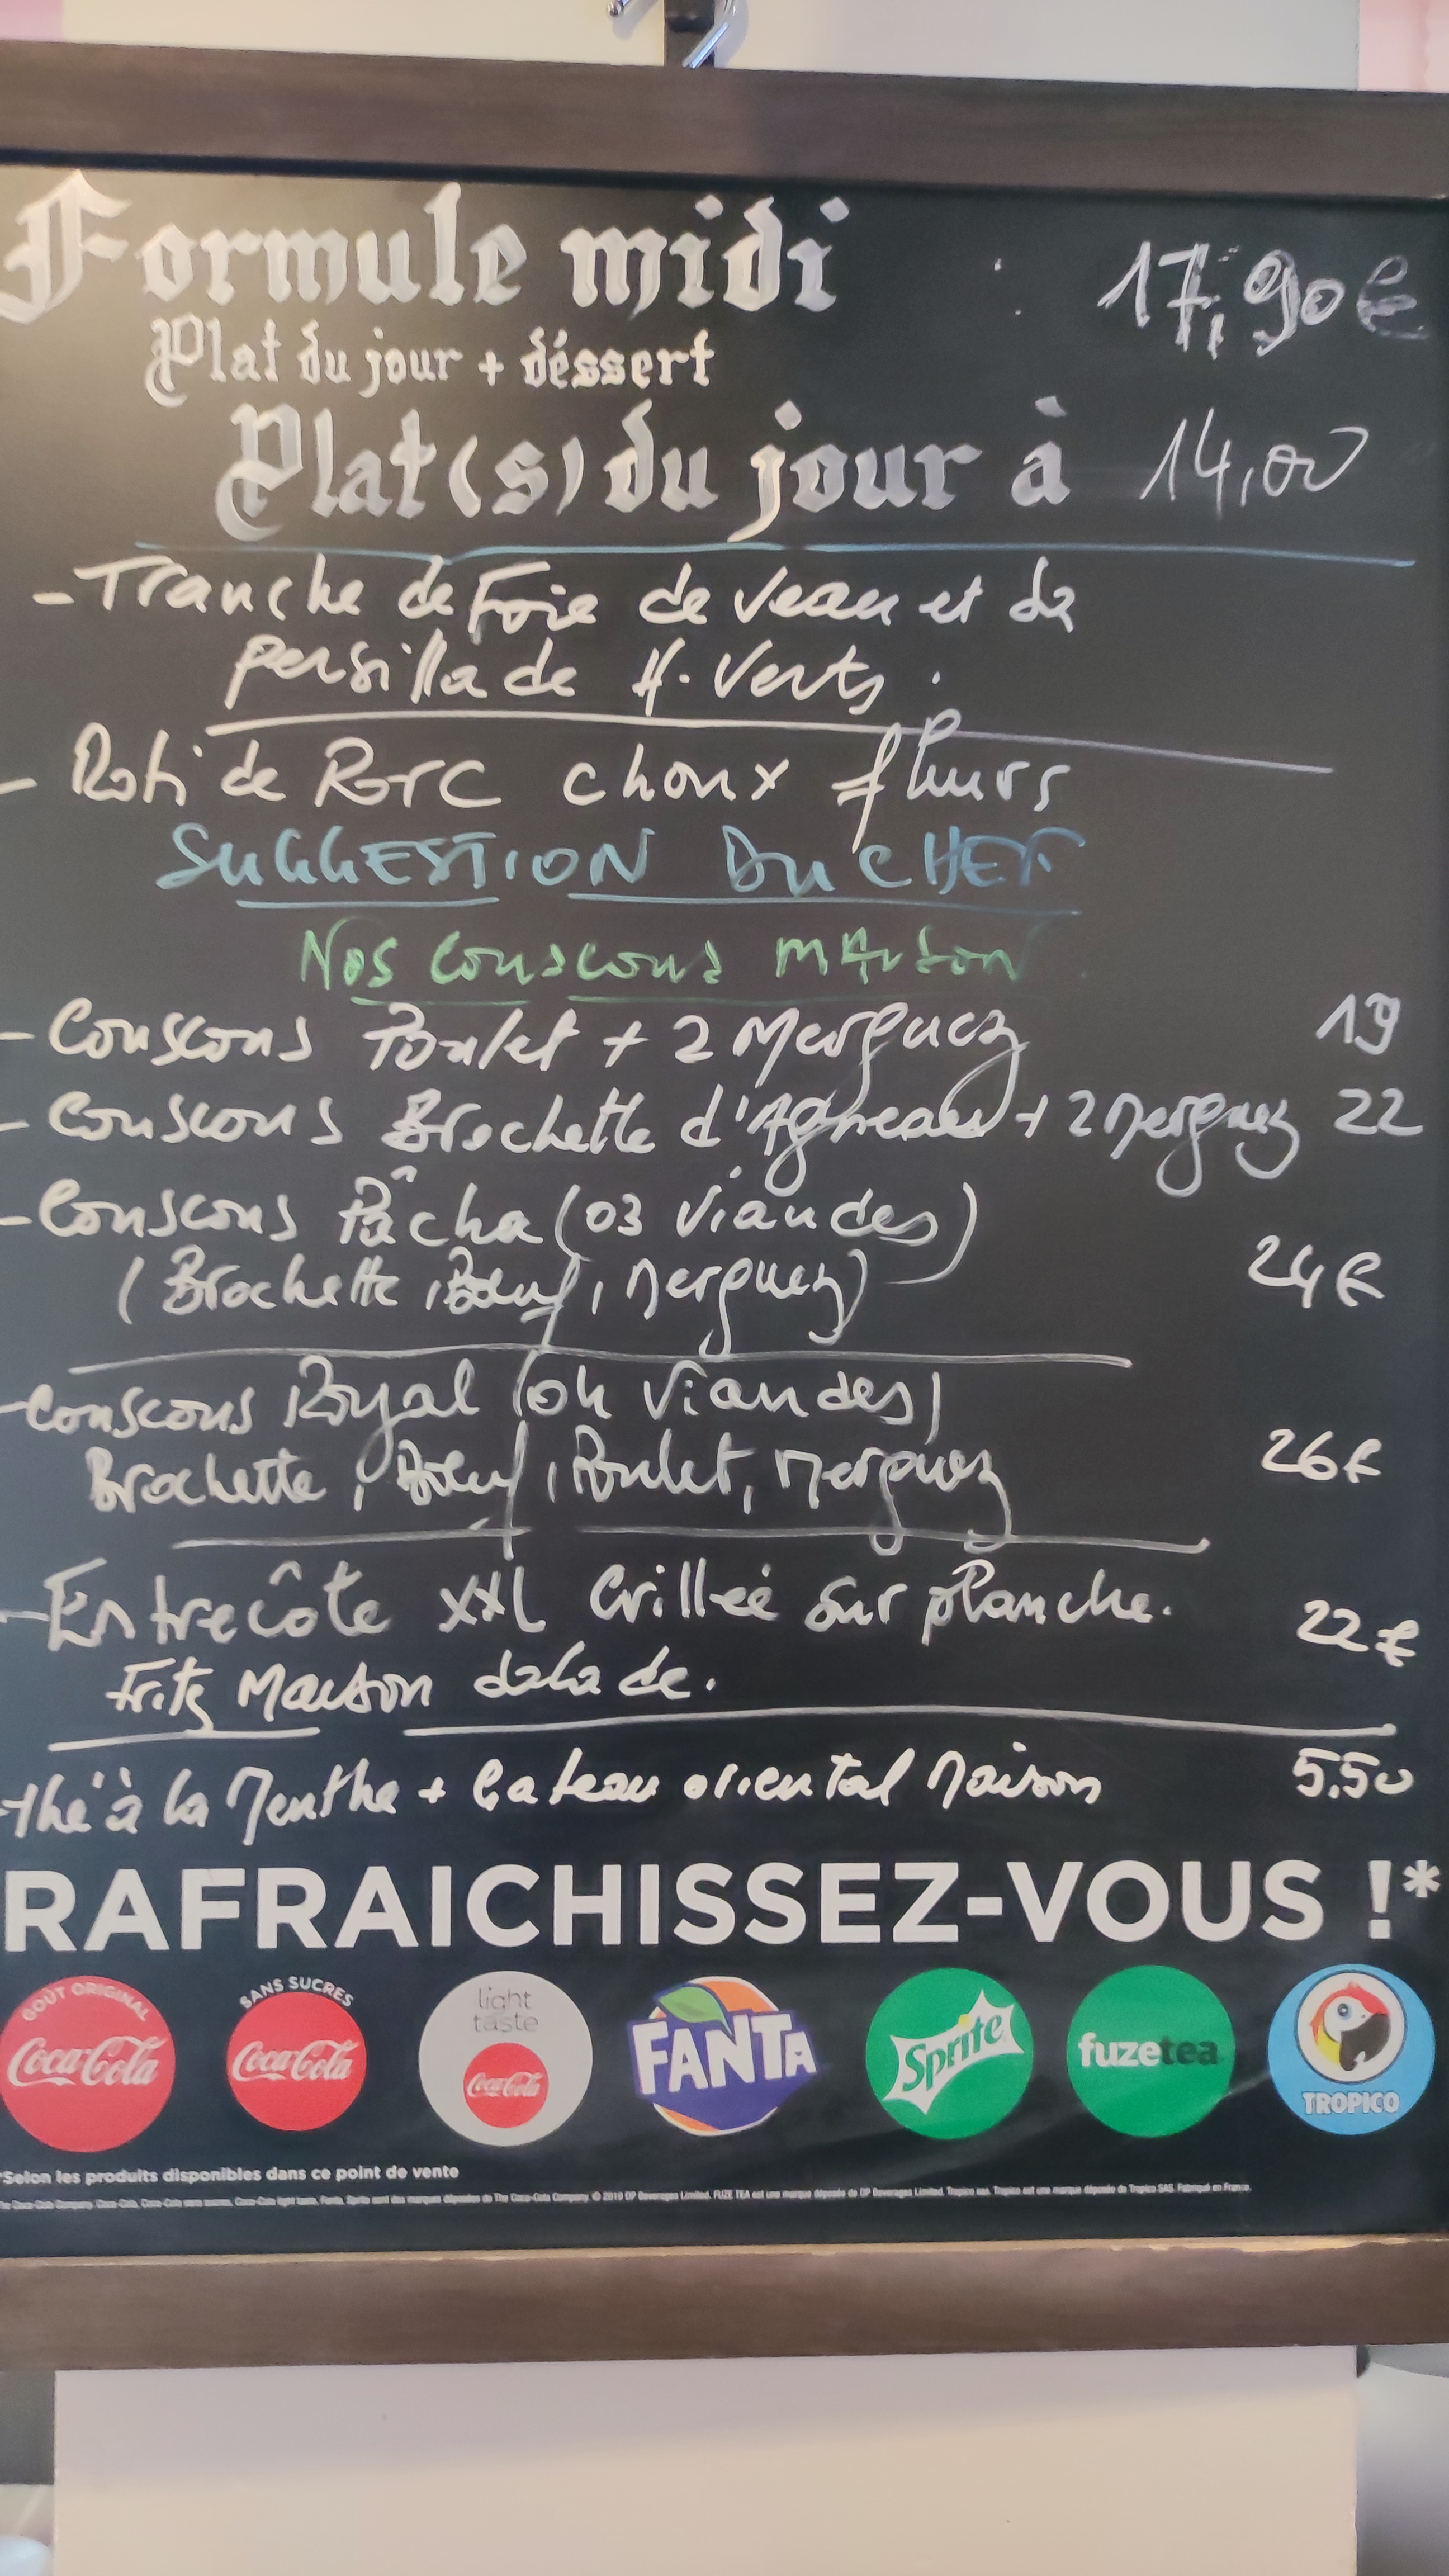 Formule midi 17,90€
Plat du jour + déssert
Plat(s) du jour à 14,00
- Tranche de Foie de Veau et sa
persillade H. Verts.
- Roti de Porc choux fleurs
SUGGESTION DU CHEF
Nos Couscous MAison
- Couscous Poulet + 2 Merguez 19
- Couscous Brochette d'Agneau + 2 Merguez 22
- Couscous Pâcha (03 Viandes)
(Brochette, Bœuf, Merguez) 24€
- Couscous Royal (04 Viandes)
Brochette, Bœuf, Poulet, Merguez 26€
- Entrecôte XXL Grilleé sur planche. 22€
Frits Maison salade.
- thé à la Menthe + Gateau oriental Maison 5.50
RAFRAICHISSEZ-VOUS !*
GOÛT ORIGINAL Coca-Cola
SANS SUCRES Coca-Cola
light taste Coca-Cola
FANTA
Sprite
fuzetea
TROPICO
*Selon les produits disponibles dans ce point de vente